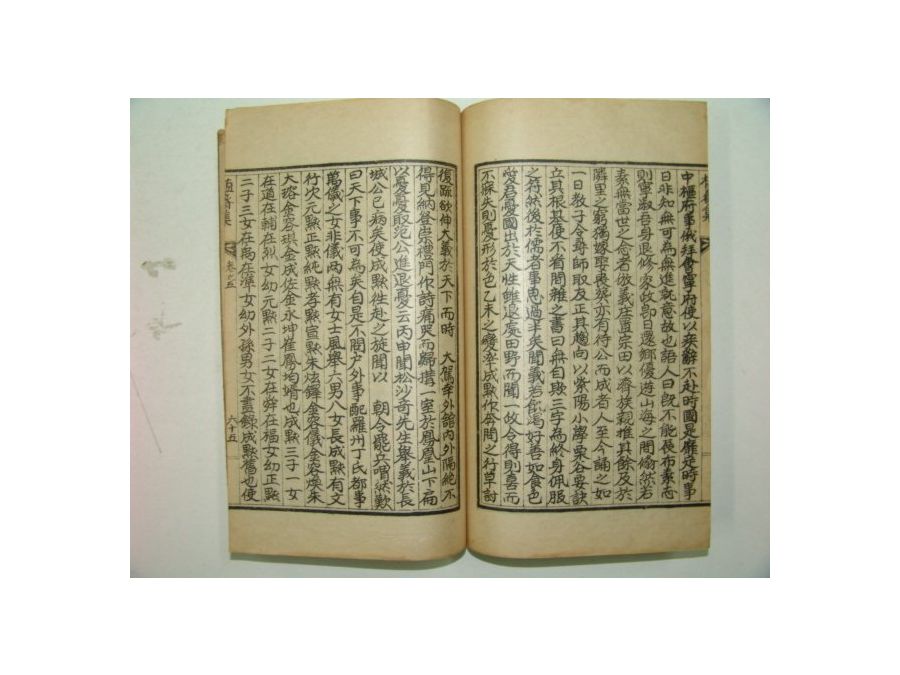 中樞府事俄拜會寧府使以疾辭不赴時國是靡定時事
日非知無可為無進就意故也語人曰旣不能使布素志
則寧淑吾身退修家政卽日還鄕優遊山海之間翛然若
素無當世之念者放義庄置宗田以濟族親推其餘及於
隣里之窮獨嫁娶喪葬亦有待公而成者人至今誦之如
一日敎子令尋師取友正其趨向以紫陽小學栗谷要訣
立其根基使不省閒雜之書曰無自欺三字為終身佩服
之符然後於儒者事思過半矣聞義若飢渴好善如食色
愛君憂國出於天性雖退處田野而聞一政令得則喜而
不寐失則憂形於色乙未之變澤成㸃作奔問之行草討
復疏欲伸大義於天下而時 大駕幸外舘內外隔絶不
得見納登崇禮門作詩痛哭而歸搆一室於鳳凰山下扁
以憂憂取范公進退憂云丙申聞松沙奇先生擧義於長
城公已病矣使成㸃往赴之旋聞以 朝令罷兵喟然歎
曰天下事不可為矣自是不問戶外事配羅州丁氏都事
萬儀之女非儀兩無有女士風擧六男八女長成㸃有文
行次元㸃正㸃純㸃孝㸃宣㸃朱炫鐸金容儀金容煥朱
大瑢金容琪金成佐金永坤崔鳳均婿也成㸃三子一女
在道在輔在紈女幼元㸃二子二女在舜在福女幼正㸃
二子三女在禹在澤女幼外孫男女不盡錄成㸃舊也使
卷之五
六十五